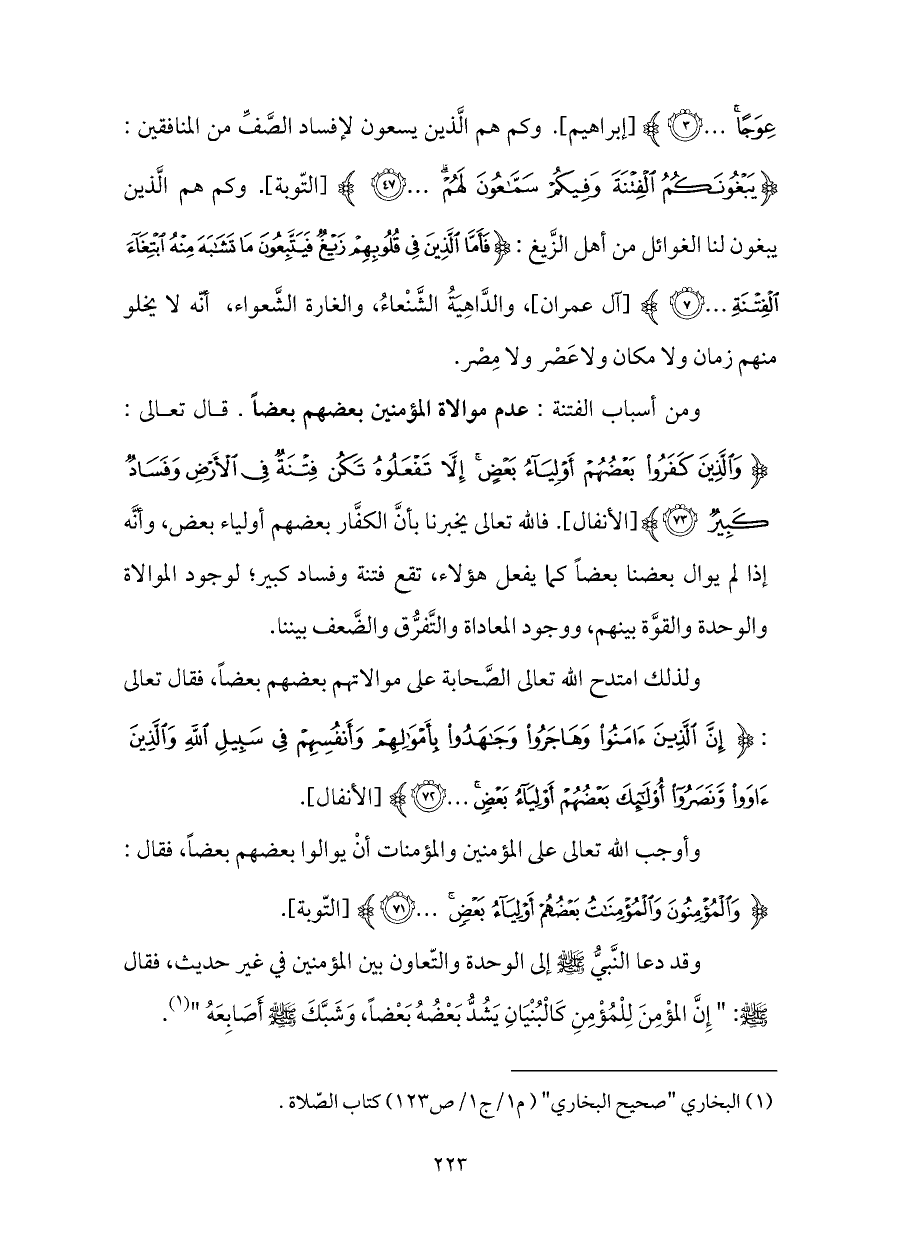 عِوَجًاۚ ... ٣ ﴾ [إبراهيم]. وكم هم الَّذين يسعون لإفساد الصَّفِّ من المنافقين :
﴿ يَبۡغُونَكُمُ ٱلۡفِتۡنَةَ وَفِيكُمۡ سَمَّٰعُونَ لَهُمۡۗ ... ٤٧ ﴾ [التّوبة]. وكم هم الَّذين
يبغون لنا الغوائل من أهل الزَّيغ : ﴿ فَأَمَّا ٱلَّذِينَ فِي قُلُوبِهِمۡ زَيۡغٞ فَيَتَّبِعُونَ مَا تَشَٰبَهَ مِنۡهُ ٱبۡتِغَآءَ
ٱلۡفِتۡنَةِ ... ٧ ﴾ [آل عمران]، والدَّاهِيَةُ الشَّنْعاءُ، والغارة الشَّعواء، أنّه لا يخلو
منهم زمان ولا مكان ولا عَصْر ولا مِصْر.
ومن أسباب الفتنة : عدم موالاة المؤمنين بعضهم بعضاً . قال تعالى :
﴿ وَٱلَّذِينَ كَفَرُواْ بَعۡضُهُمۡ أَوۡلِيَآءُ بَعۡضٍۚ إِلَّا تَفۡعَلُوهُ تَكُن فِتۡنَةٞ فِي ٱلۡأَرۡضِ وَفَسَادٞ
كَبِيرٞ ٧٣ ﴾ [الأنفال]. فالله تعالى يخبرنا بأنَّ الكفَّار بعضهم أولياء بعض، وأنَّه
إذا لم يوال بعضنا بعضاً كما يفعل هؤلاء، تقع فتنة وفساد كبير؛ لوجود الموالاة
والوحدة والقوَّة بينهم، ووجود المعاداة والتَّفرُّق والضَّعف بيننا.
ولذلك امتدح الله تعالى الصَّحابة على موالاتهم بعضهم بعضاً، فقال تعالى
: ﴿ إِنَّ ٱلَّذِينَ ءَامَنُواْ وَهَاجَرُواْ وَجَٰهَدُواْ بِأَمۡوَٰلِهِمۡ وَأَنفُسِهِمۡ فِي سَبِيلِ ٱللَّهِ وَٱلَّذِينَ
ءَاوَواْ وَّنَصَرُوٓاْ أُوْلَٰٓئِكَ بَعۡضُهُمۡ أَوۡلِيَآءُ بَعۡضٖۚ ... ٧٢ ﴾ [الأنفال].
وأوجب الله تعالى على المؤمنين والمؤمنات أنْ يوالوا بعضهم بعضاً، فقال :
﴿ وَٱلۡمُؤۡمِنُونَ وَٱلۡمُؤۡمِنَٰتُ بَعۡضُهُمۡ أَوۡلِيَآءُ بَعۡضٖۚ ... ٧١ ﴾ [التّوبة].
وقد دعا النَّبيُّ ﷺ إلى الوحدة والتّعاون بين المؤمنين في غير حديث، فقال
ﷺ: " إِنَّ المؤْمِنَ لِلْمُؤْمِنِ كَالْبُنْيَانِ يَشُدُّ بَعْضُهُ بَعْضاً، وَشَبَّكَ ﷺ أَصَابِعَهُ "(١).
(١) البخاري "صحيح البخاري" ( م١/ ج١/ ص١٢٣) كتاب الصّلاة .
٢٢٣